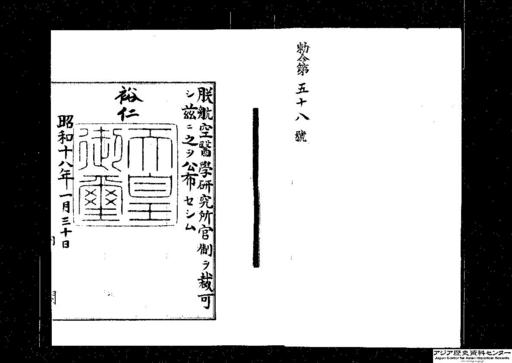 勅令第五十八號
朕航空醫學研究所官制ヲ裁可
シ茲ニ之ヲ公布セシム
裕仁
天皇御璽
昭和十八年一月三十日
アジア歴史資料センター
Japan Center for Asian Historical Records